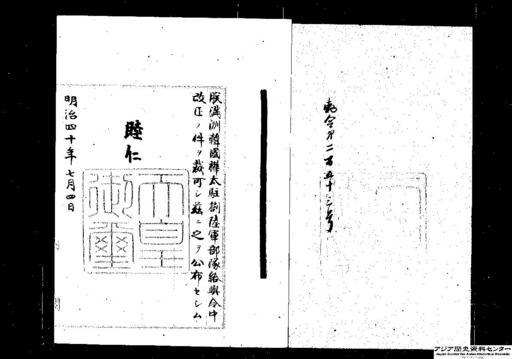 勅令第二百五十三号
朕満洲韓國樺太駐劄陸軍部隊給與令中
改正ノ件ヲ裁可シ茲ニ之ヲ公布セシム
睦仁
天皇
御璽
明治四十年七月四日
アジア歴史資料センター
Japan Center for Asian Historical Records